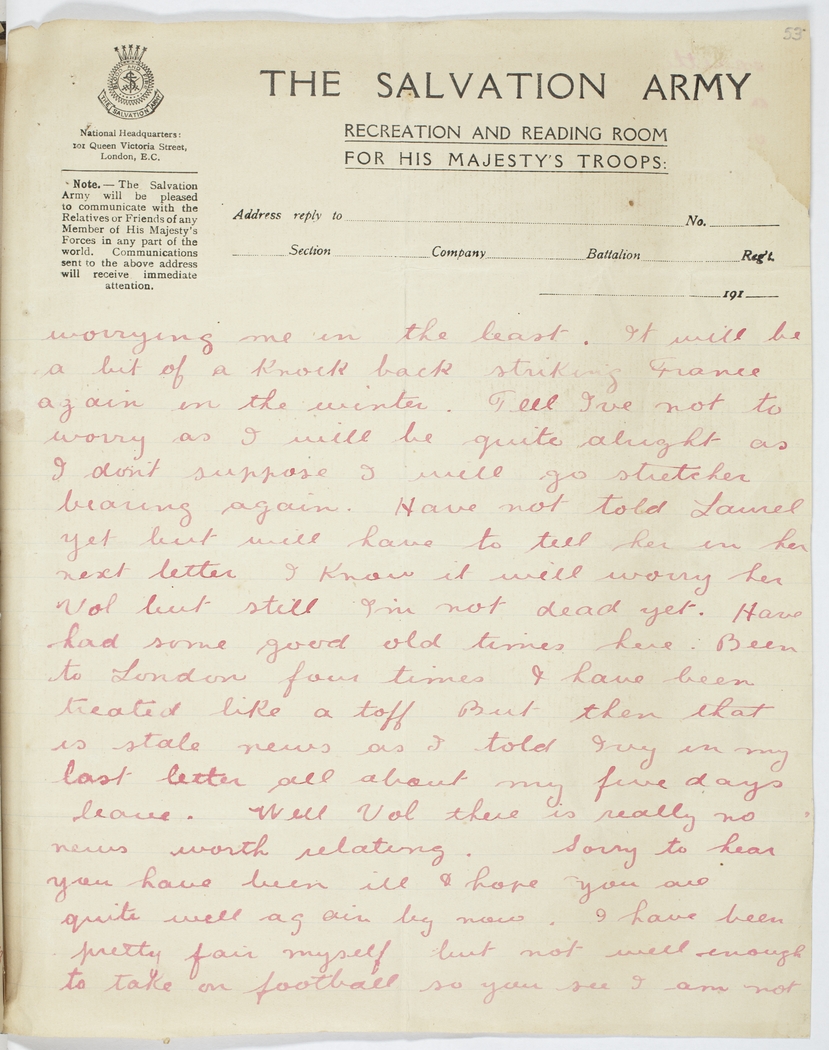 53
THE SALVATION ARMY
THE SALVATION ARMY
National Headquarters:
101 Queen Victoria Street,
London, E.C.
RECREATION AND READING ROOM
FOR HIS MAJESTY'S TROOPS:
Note. — The Salvation
Army will be pleased
to communicate with the
Relatives or Friends of any
Member of His Majesty's
Forces in any part of the
world. Communications
sent to the above address
will receive immediate
attention.
Address reply to No.
Section Company Battalion Reg't.
191
worrying me in the least. It will be
a bit of a knock back striking France
again in the winter. Tell I've not to
worry as I will be quite alright as
I don't suppose I will go stretcher
bearing again. Have not told Laurel
yet but will have to tell her in her
next letter I know it will worry her
Vol but still I'm not dead yet. Have
had some good old times here. Been
to London four times & have been
treated like a toff But then that
is stale news as I told Ivy in my
last letter all about my five days
leave. Well Vol there is really no
news worth relating. Sorry to hear
you have been ill & hope you are
quite well again by now. I have been
pretty fair myself but not well enough
to take on football so you see I am not